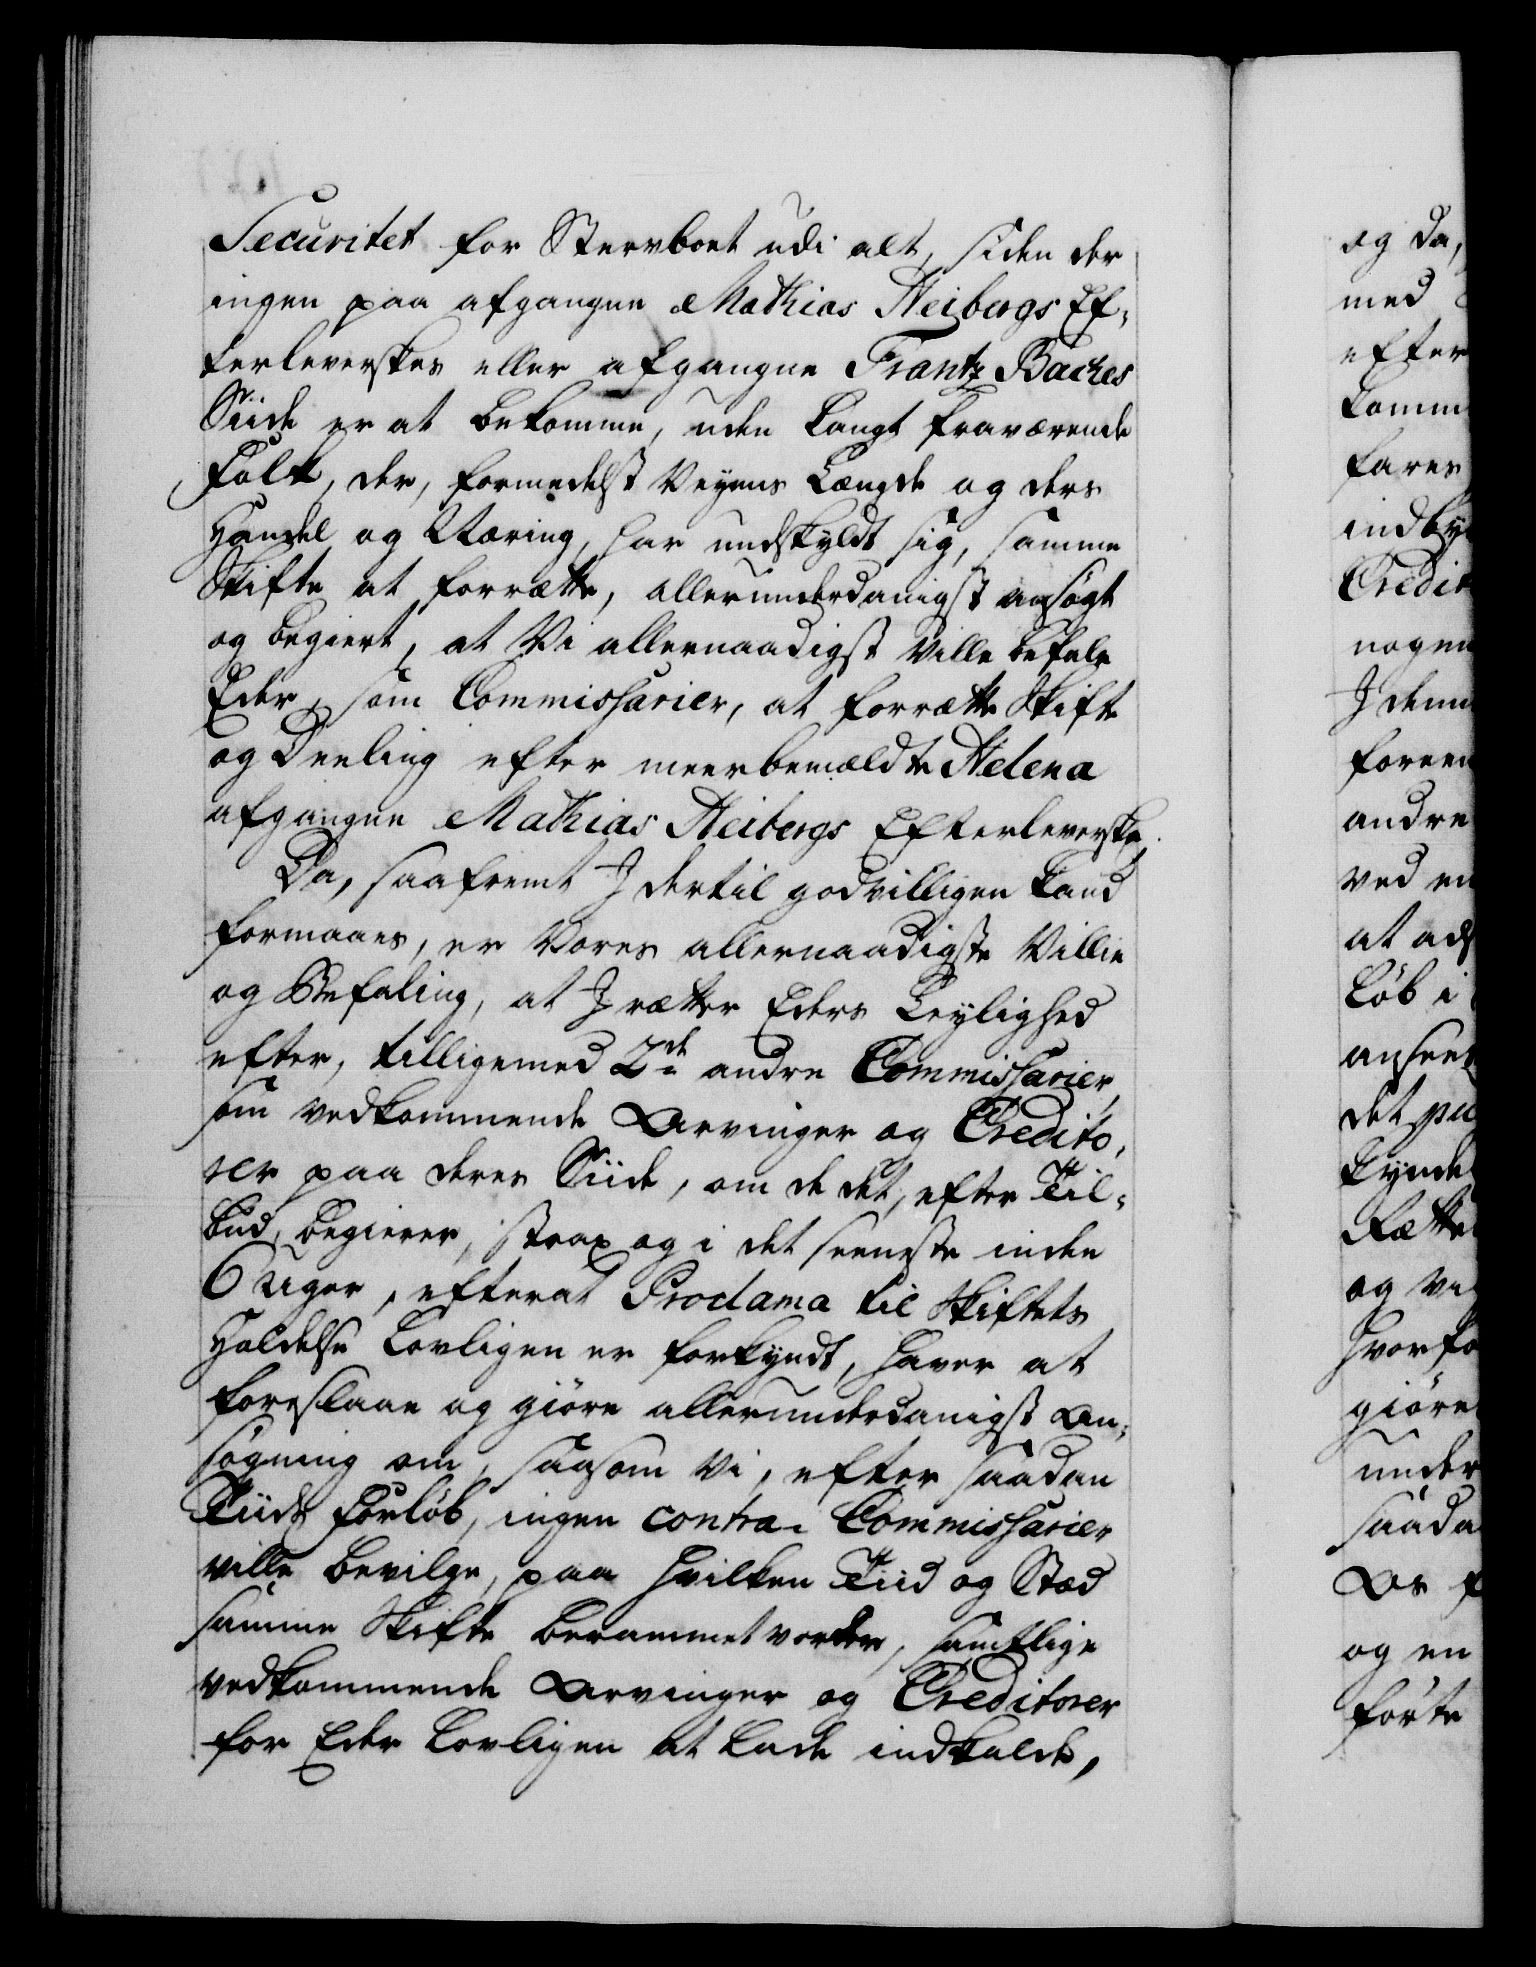 Securitet for Stervboet udi alt, siden der
ingen paa afgangne Mathias Heibergs Ef-
terleverskes eller afgangne Frantz Baches
Siide er at bekomme, uden langt fraværende
Folk, der, formedelst Veyens Længde og ders
Handel og Næring, har undskyldt sig, samme
Skifte at forrætte, allerunderdanigst ansøgt
og begiert, at Vi allernaadigst ville befale
Eder, som Commissarier, at forrætte Skifte
og Deeling efter meerbemældte Helena
afgangne Mathias Heibergs Efterleverske.
Da, saafremt I dertil godvilligen kand
formaaes, er Vores allernaadigste Villie
og Befaling, at I rætter Eders Leylighed
efter, tilligemed 2de andre Commissarier,
som vedkommende Arvinger og Credito-
rer paa deres Siide, om de det, efter Til-
bud, begierer, strax og i det seeneste inden
6 Uger, efterat Proclama til Skiftets
Holdelse lovligen er forkyndt, haver at
foreslaae og giøre allerunderdanigst An-
søgning om, saasom Vi, efter saadan
Tiids Forløb, ingen contra-Commissarier
ville bevilge, paa hvilken Tiid og Stæd
samme Skifte berammet vorder, samtlige
vedkommende Arvinger og Creditorer
for Eder lovligen at lade indkalde,
og da,
med
efter
komm
fares
indby
Credit
nogen
I denn
foreen
andre
ved en
at ads
løb i
anseet
det pu
kynde
Rætte
og vi
hvorfo
giøre
under
saada
Os f
og en
førte